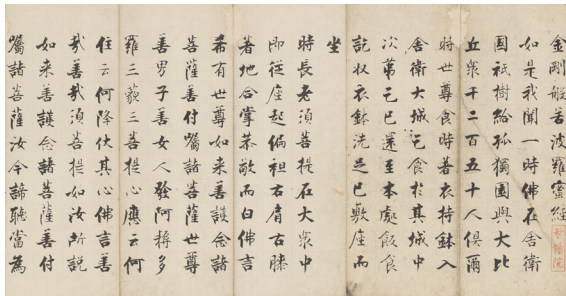 金剛般若波羅蜜經
如是我聞一時佛在舍衛
國祇樹給孤獨園與大比
丘眾千二百五十人俱爾
時世尊食時著衣持鉢入
舍衛大城乞食於其城中
次第乞已還至本處飯食
訖收衣鉢洗足已敷座而
坐
時長老須菩提在大眾中
即從座起偏袒右肩右膝
著地合掌恭敬而白佛言
希有世尊如来善護念諸
菩薩善付囑諸菩薩世尊
善男子善女人發阿耨多
羅三藐三菩提心應云何
住云何降伏其心佛言善
哉善哉須菩提如汝所說
如来善護念諸菩薩善付
囑諸菩薩汝今諦聽當為